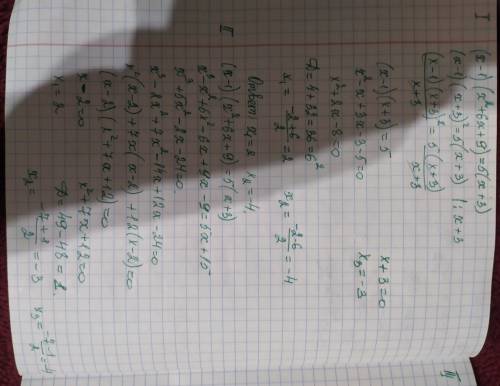 I
(x-1)(x²+6x+9)=5(x+3)
(x-1)(x+3)²=5(x+3) |: x+3
(x-1)(x+3)²/x+3 = 5(x+3)/x+3
(x-1)(x+3)=5 x+3=0
x²-x+3x-3-5=0 x₃=-3
x²+2x-8=0
D=4+32=36=6²
x₁=(-2+6)/2=2 x₂=(-2-6)/2=-4
Ответ x₁=2 x₂=-4
II
(x-1)(x²+6x+9)=5(x+3)
x³-x²+6x²-6x+9x-9=5x+15
x³+5x²-2x-24=0
x³-2x²+7x²-14x+12x-24=0
x²(x-2)+7x(x-2)+12(x-2)=0
(x-2)(x²+7x+12)=0
x-2=0 x²+7x+12=0
x₁=2 D=49-48=1
x₂=(-7+1)/2=-3 x₃=(-7-1)/2=-4
III